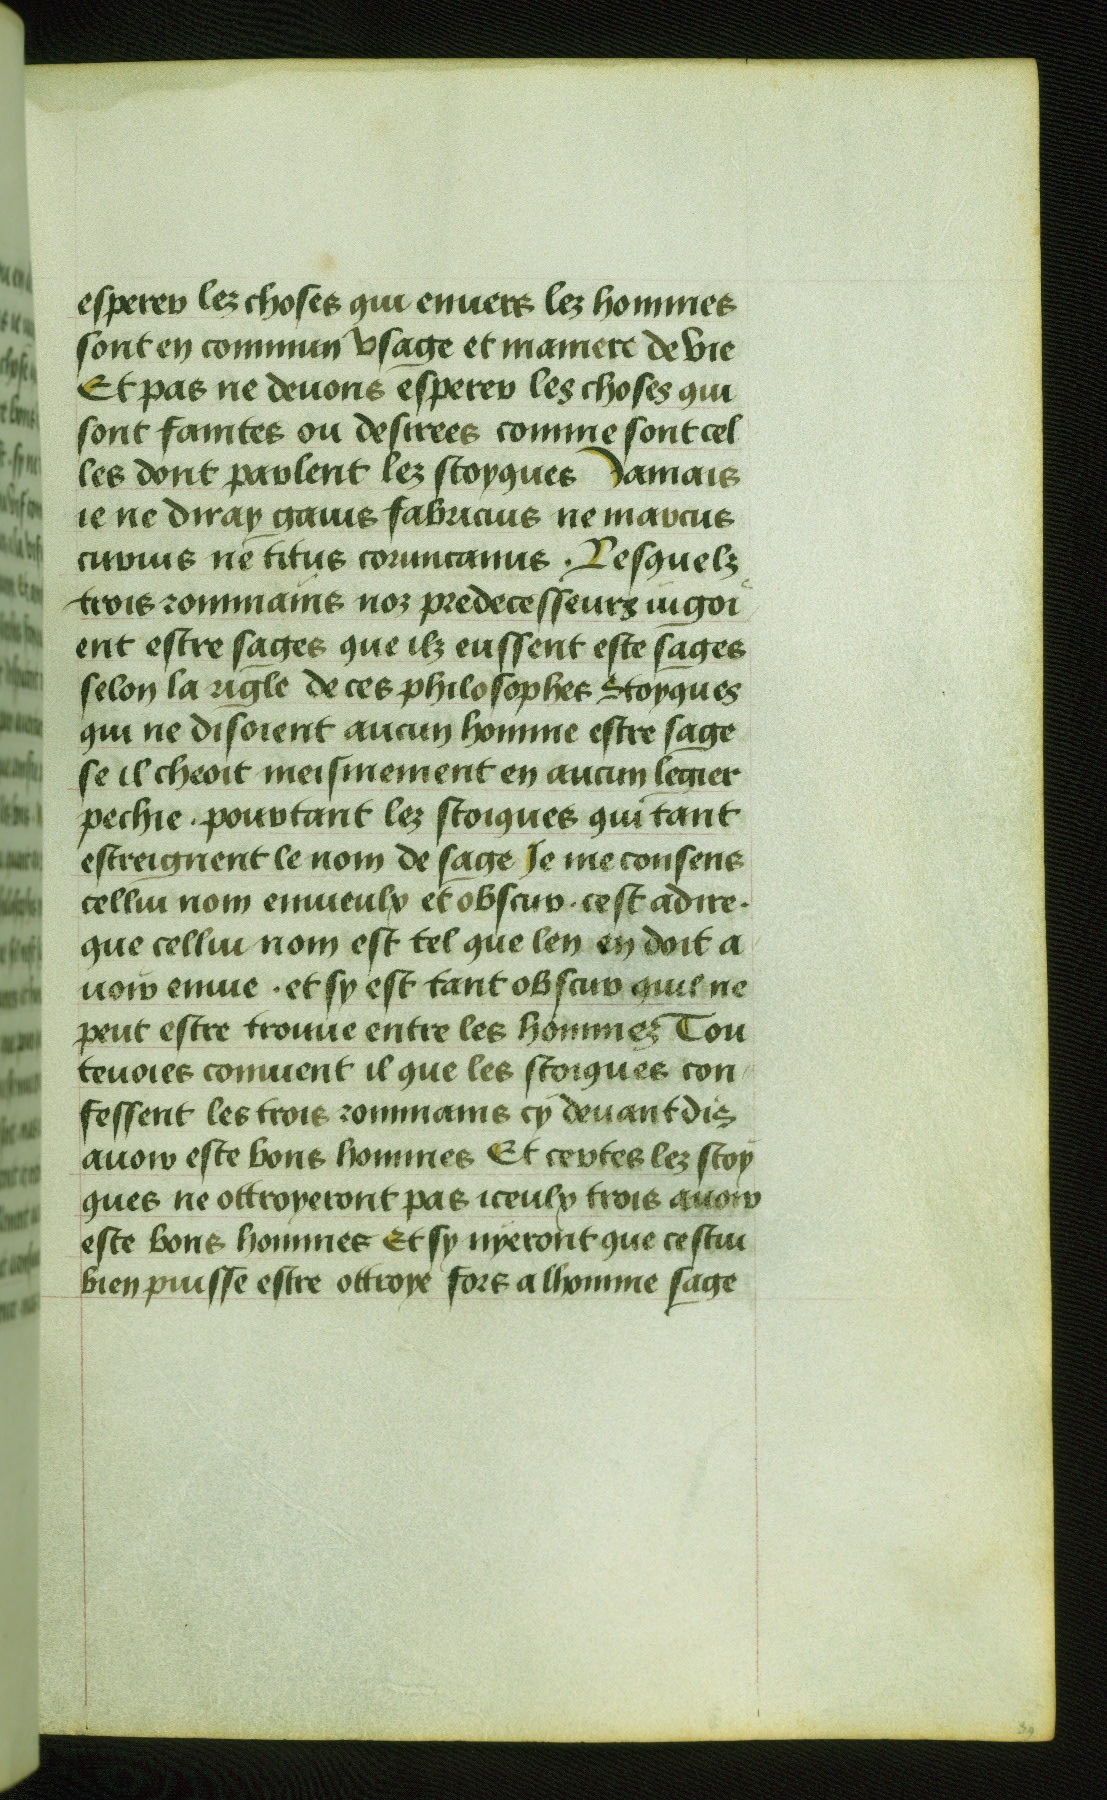 esperer lez choses qui enuers lez hommes
sont en commun vsage et maniere de vie
Et pas ne deuons esperer les choses qui
sont faintes ou desirees comme sont cel
les dont parlent lez stoyques Jamais
ie ne diray gaius fabricius ne marcus
curius ne titus coruncanus . Lesquelz
trois rommains noz predecesseurs iugoi
ent estre sages que ilz eussent este sages
selon la rigle de ces philosophes Stoyques
qui ne disoient aucun homme estre sage
se il cheoit meismement en aucun legier
pechie . pourtant lez stoiques qui tant
estreignent le nom de sage Je me consens
cellui nom enuieulx et obscur . cest adire .
que cellui nom est tel que len en doit a
uoir enuie . et sy est tant obscur quil ne
peut estre trouue entre les hommez Tou
teuoies conuient il que les stoiques con
fessent les trois rommains cy deuant dis
auoir este bons hommes Et certes lez stoy
ques ne ottroyeront pas iceulx trois auoir
este bons hommes Et sy nyeront que cestui
bien puisse estre ottroye fors a lhomme sage
39